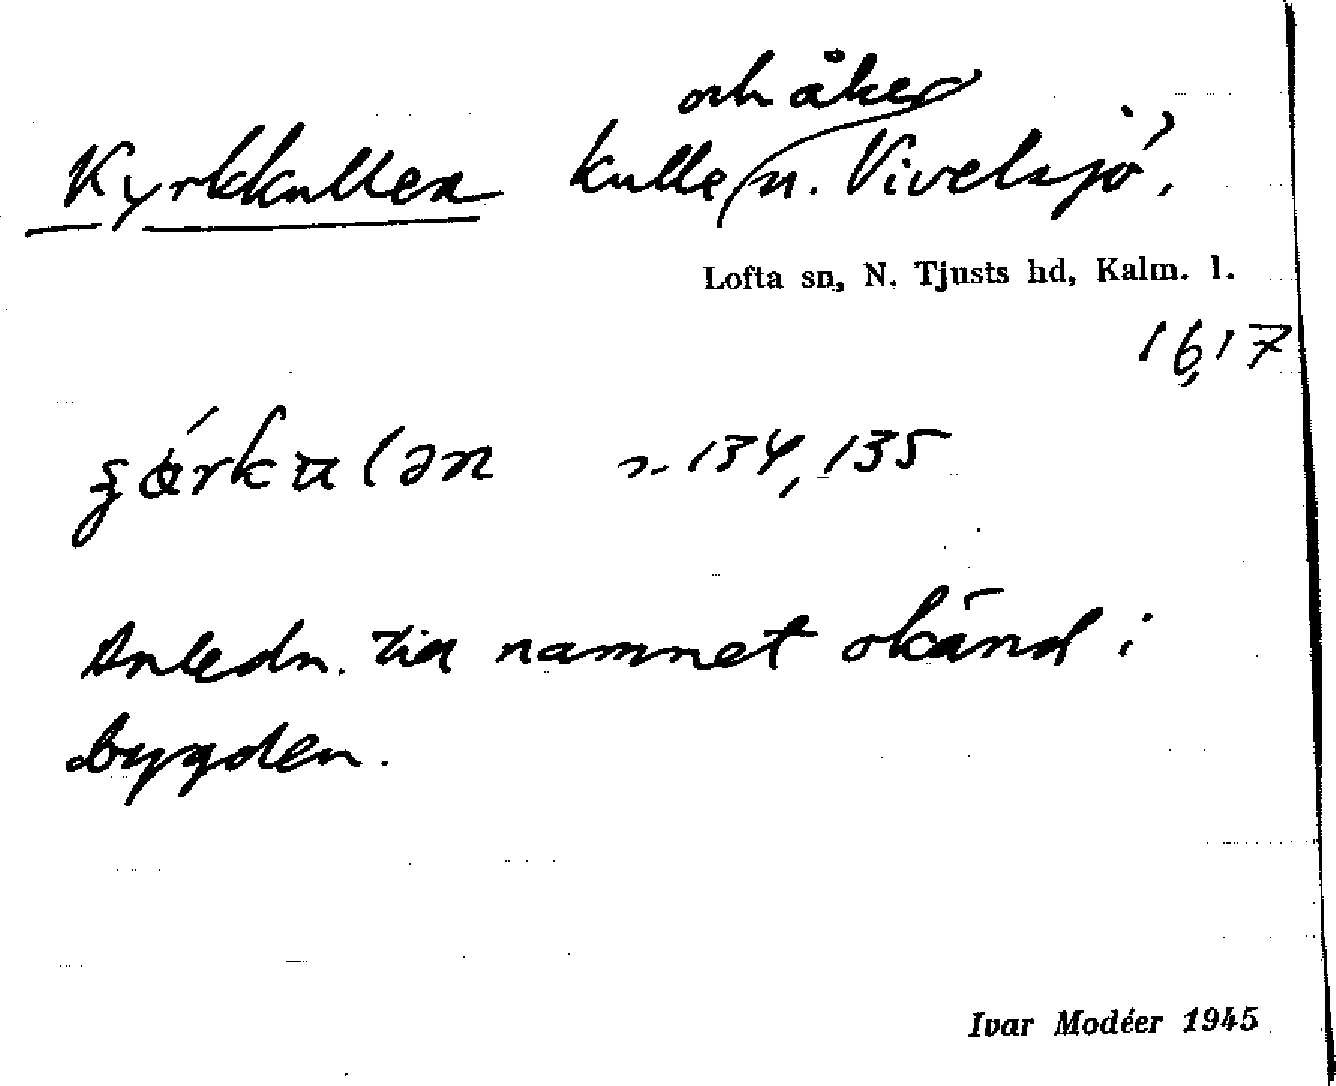 Kyrkkullen kulle och åker n. Vivelsjö.
Lofta sn, N. Tjusts hd, Kalm. l.
n. 134, 135
Anledn. till namnet okänd i
bygden.
Ivar Modéer 1945